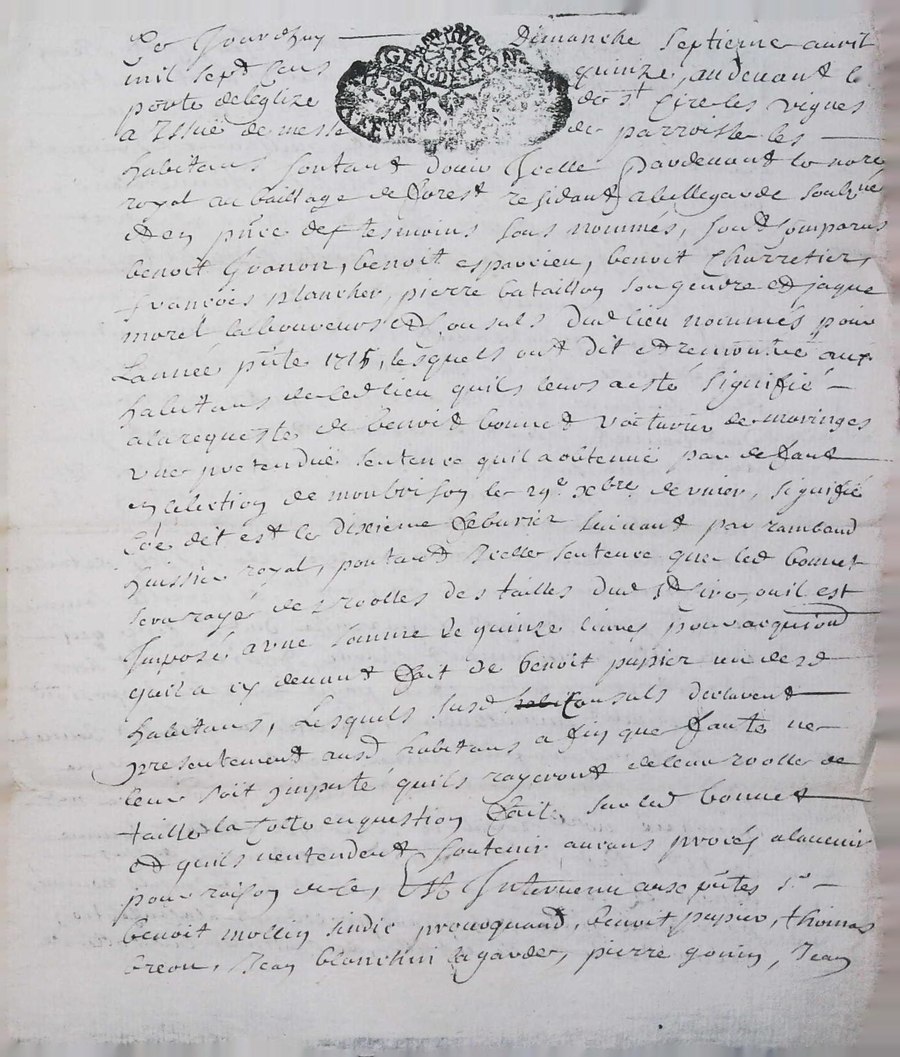 Ce Jourdhuy Dimanche septieme avril
mil sept Cens quinze, audevant la
porte deleglize de St Cire les vignes
a Issüe de messe de parroisse les
habitans sortant douir Icelle pardevant le nore
royal au bailliage de forest residant a bellegarde soubné
et en pñce des tesmoins sous nommés, sont Comparus
benoit Granon, benoit esparcieu, benoit Charretier,
francois plancher, pierre bataillon son gendre et jaque
morel laboureurs et Consuls dud lieu nommés pour
Lannée pñte 1715, lesquels ont dit et remontré aux
habitans de ced lieu quils leurs a esté signifié
a la requeste de benoit bonnet voiturier de maringes
vne pretendue sentence quil a obtenue par defaut
en Lelection de monbrison le 29e xbre dernier, signifié
dit est le dixieme feburier suivant par rambaud
huissier royal, portant Icelle sentence que led bonnet
sera rayé des roolles des tailles dud St Cire, ou il est
Imposé a vne somme de quinze liures pour acquision
quil a cy devant fait de benoit papier un desd
habitans, Lesquels susd Consuls declarent
presentement ausd habitans a fin que faute ne
leur soit imputé quils rayeront de leur roolle de
taille la Cotte en question fait sur led bonnet
et quils nentendent soutenir aucuns procés alauenir
pour raison de ce, Et Interuenu aux pñtes sr
benoit mollin sindic benoit papier, thomas
breou, Jean blanchin lagarde, pierre gonin, Jean